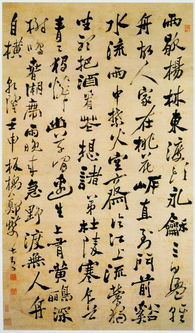 雨歇楊林東渡頭永龢三日盪輕
舟故人家在桃花岸直到門前谿
水流雨中禁火空齋冷江上流鶯獨
坐聽把酒看花想諸弟杜陵寒食草
青青獨憐幽草澗邊生上有黃鸝深
樹鳴春潮帶雨晚來急野渡無人舟
自橫 乾隆壬申 板橋鄭燮